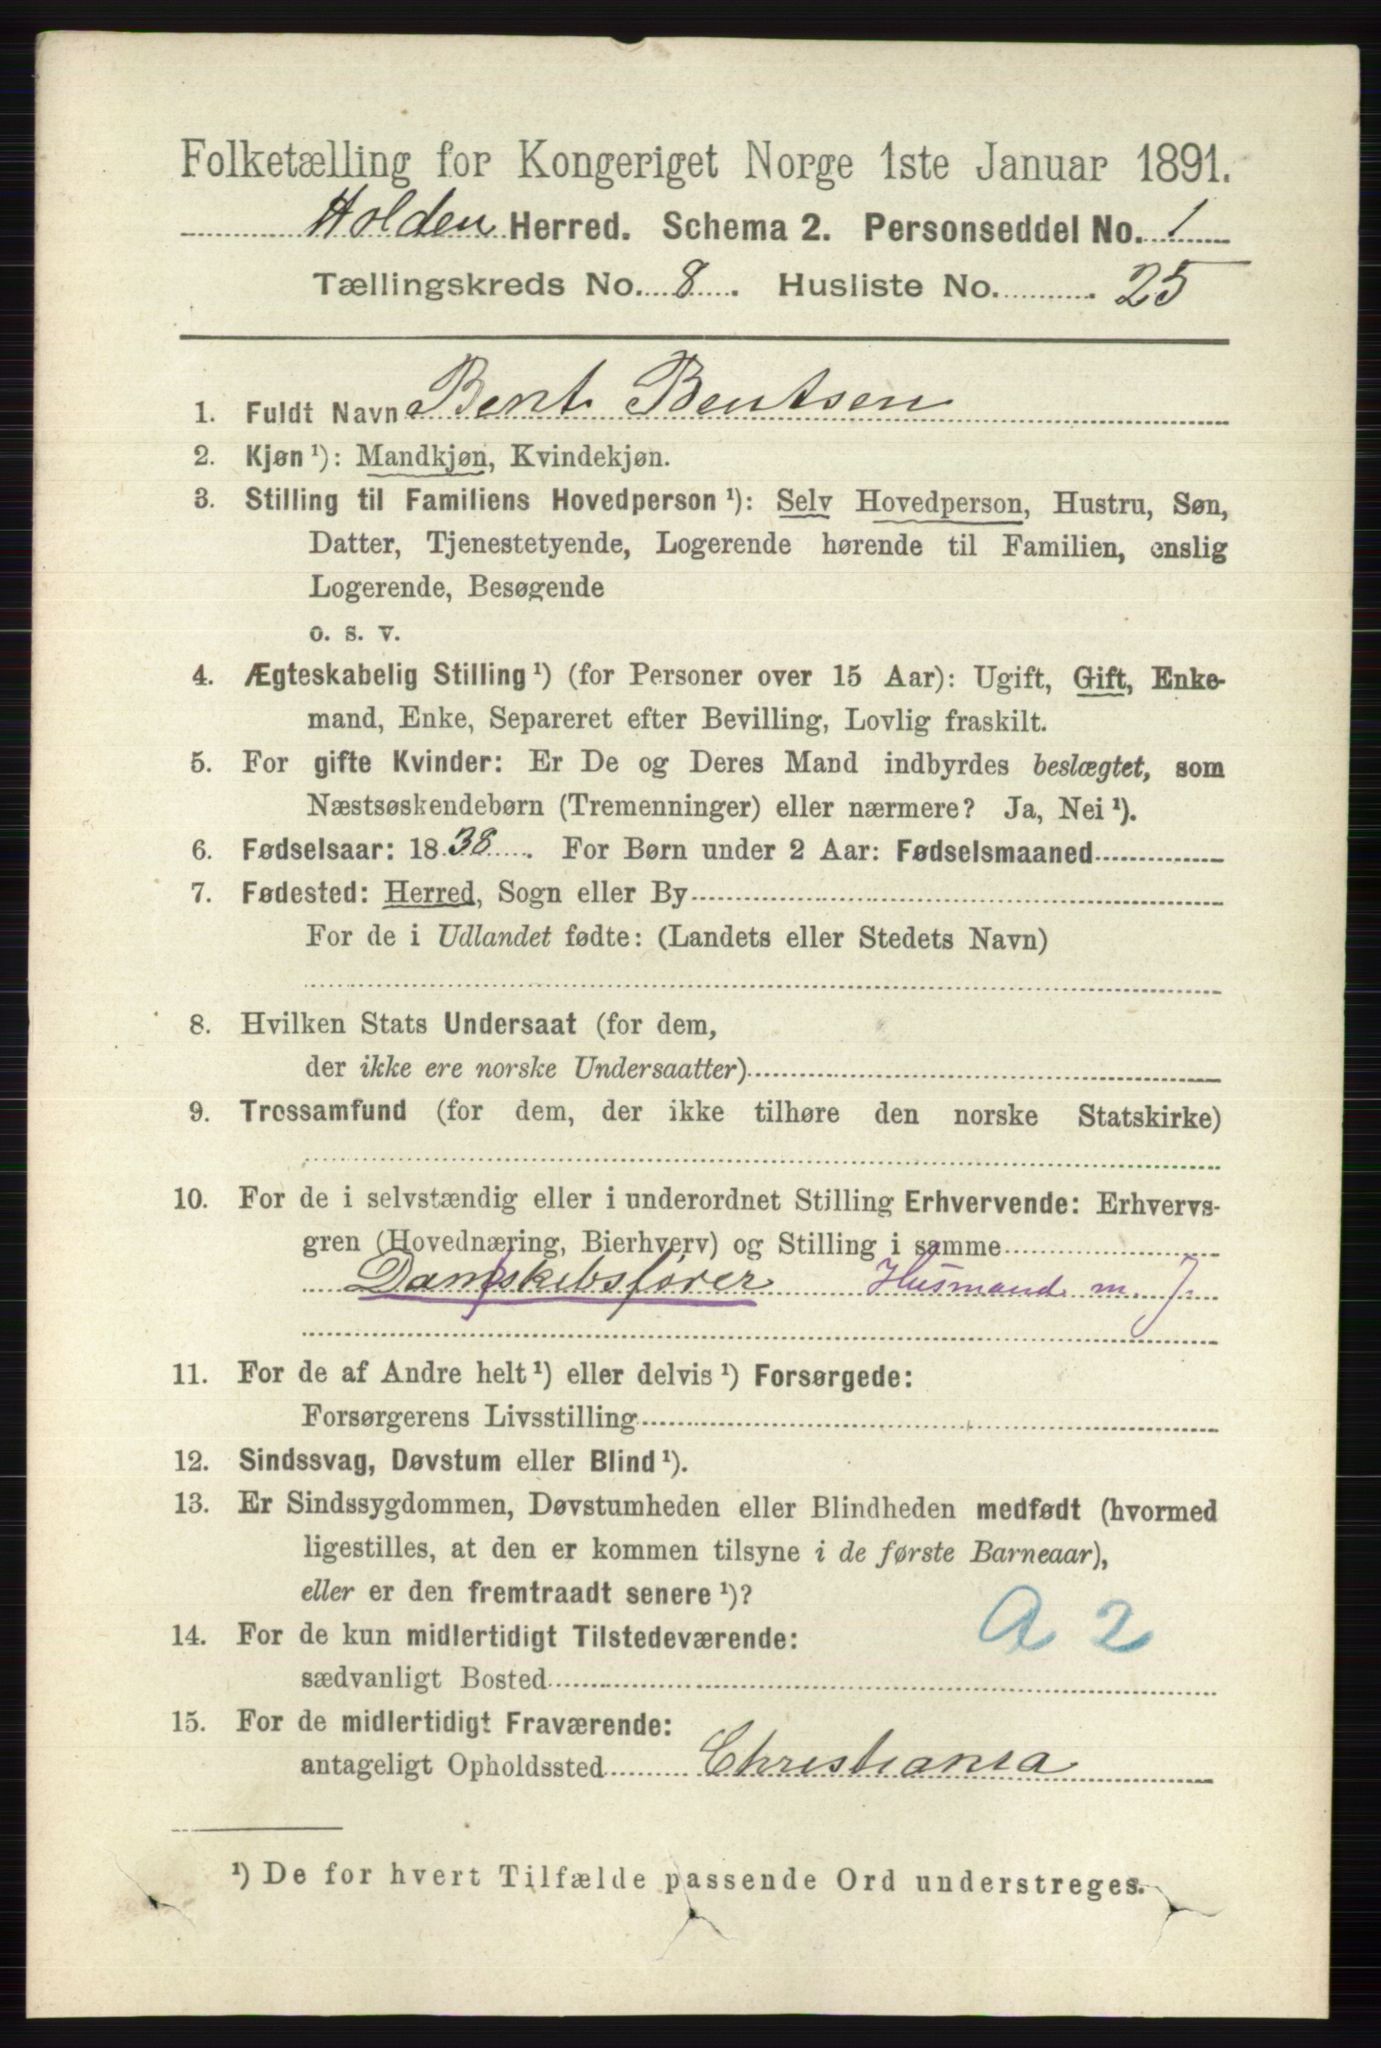 Folketælling for Kongeriget Norge 1ste Januar 1891.
Holden Herred. Schema 2. Personseddel No. 1
Tællingskreds No. 8. Husliste No. 25
1. Fuldt Navn Bent Bentsen
2. Kjøn ¹): Mandkjøn, Kvindekjøn.
3. Stilling til Familiens Hovedperson ¹): Selv Hovedperson, Hustru, Søn,
Datter, Tjenestetyende, Logerende hørende til Familien, enslig
Logerende, Besøgende
o. s. v.
4. Ægteskabelig Stilling ¹) (for Personer over 15 Aar): Ugift, Gift, Enke-
mand, Enke, Separeret efter Bevilling, Lovlig fraskilt.
5. For gifte Kvinder: Er De og Deres Mand indbyrdes beslægtet, som
Næstsøskendebørn (Tremenninger) eller nærmere? Ja, Nei ¹).
6. Fødselsaar: 1838. For Børn under 2 Aar: Fødselsmaaned
7. Fødested: Herred, Sogn eller By
For de i Udlandet fødte: (Landets eller Stedets Navn)
8. Hvilken Stats Undersaat (for dem,
der ikke ere norske Undersaatter)
9. Trossamfund (for dem, der ikke tilhøre den norske Statskirke)
10. For de i selvstændig eller i underordnet Stilling Erhvervende: Erhvervs-
gren (Hovednæring, Bierhverv) og Stilling i samme
Dampskibsfører Husmand m. J.
11. For de af Andre helt ¹) eller delvis ¹) Forsørgede:
Forsørgerens Livsstilling
12. Sindssvag, Døvstum eller Blind ¹).
13. Er Sindssygdommen, Døvstumheden eller Blindheden medfødt (hvormed
ligestilles, at den er kommen tilsyne i de første Barneaar),
eller er den fremtraadt senere ¹)?
a 2
14. For de kun midlertidigt Tilstedeværende:
sædvanligt Bosted
15. For de midlertidigt Fraværende:
antageligt Opholdssted Christiania
¹) De for hvert Tilfælde passende Ord understreges.